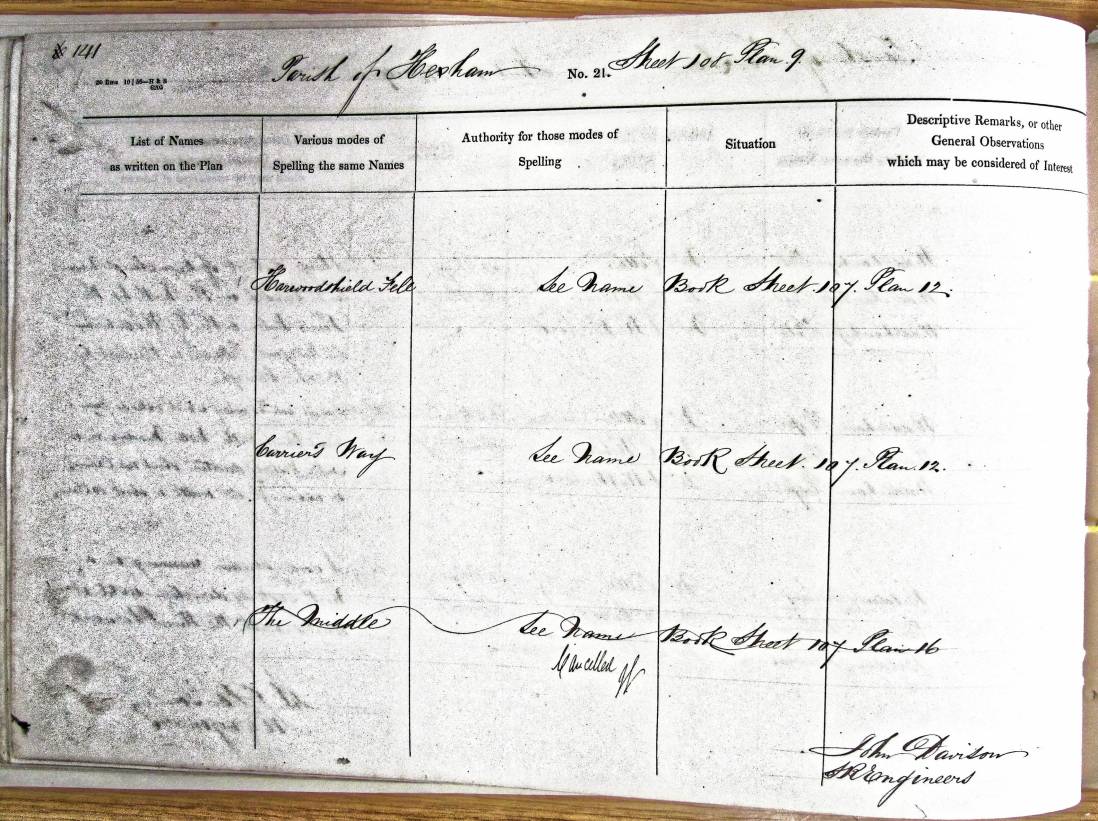 141
Parish of Hexham No. 21. Sheet 108 Plan 9.
List of Names
as written on the Plan
Various modes of
Spelling the same Names
Authority for those modes of
Spelling
Situation
Descriptive Remarks, or other
General Observations
which may be considered of Interest
Harwoodshield Fell See Name Book Sheet 107. Plan 12.
Carrier's Way See Name Book Sheet. 107. Plan. 12.
The Middle See Name Book Sheet 107 Plan 16
Cancelled
John Davison
Engineers